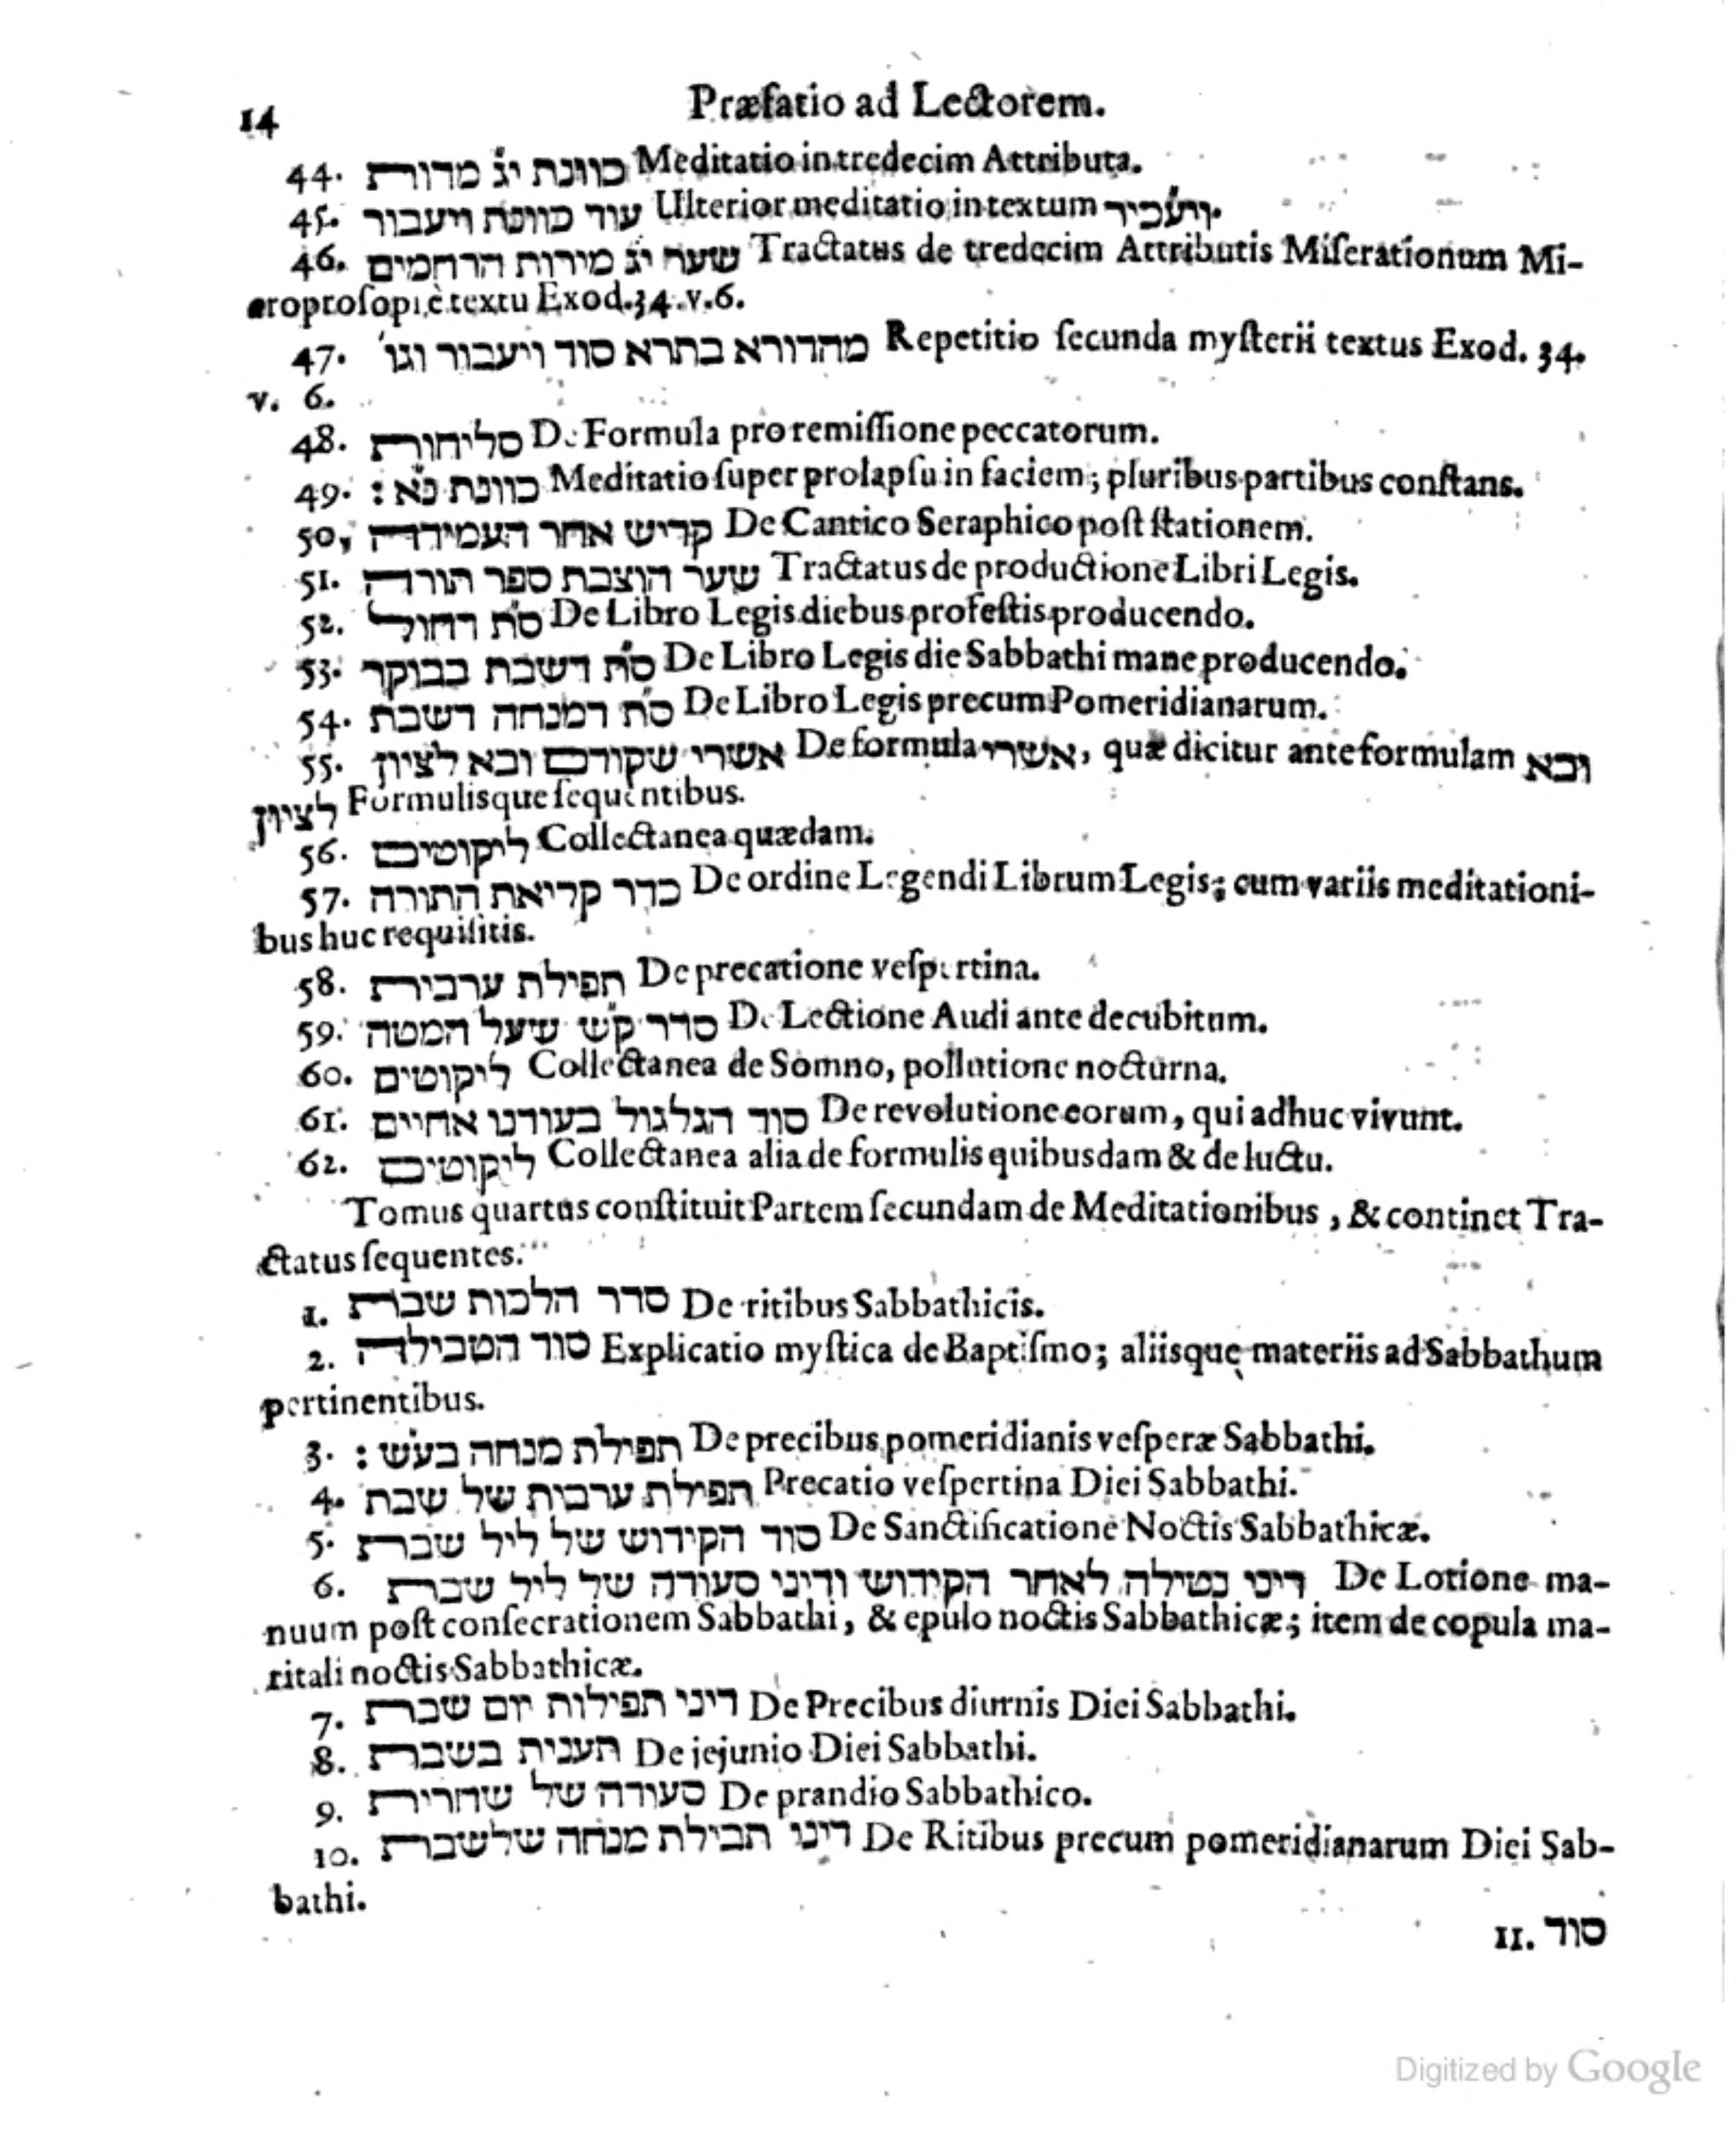 14 Præfatio ad Lectorem.
44. כוונת יג֗ מדות Meditatio in tredecim Attributa.
45. עוד כוונת ויעבור Ulterior meditatio in textum
46. שער יג֗ מידות הרחמים Tractatus de tredecim Attributis Miſerationum Mi-
croproſopi, è textu Exod. 34. v. 6.
47. מהדורא בתרא סוד ויעבור וגו׳ Repetitio ſecunda myſterii textus Exod. 34.
v. 6.
48. סליחות De Formula pro remiſſione peccatorum.
49. כוונת נ֗א֗: Meditatio ſuper prolapſu in faciem; pluribus partibus conſtans.
50. קדיש אחר העמידה De Cantico Seraphico poſt ſtationem.
51. שער הוצבת ספר תורה Tractatus de productione Libri Legis.
52. ס֗ת֗ דחול De Libro Legis diebus profeſtis producendo.
53. ס֗ת֗ דשבת בבוקר De Libro Legis die Sabbathi mane producendo.
54. ס֗ת֗ דמנחה דשבת De Libro Legis precum Pomeridianarum.
55. אשרי שקודם ובא לציון De formula אשרי, quæ dicitur ante formulam ובא
לציון Formulisque ſequentibus.
56. ליקוטים Collectanea quædam.
57. כדר קריאת התורה De ordine Legendi Librum Legis; cum variis meditationi-
bus huc requiſitis.
58. תפילת ערבית De precatione veſpertina.
59. סדר ק֗ש֗ שיעל המטה De Lectione Audi ante decubitum.
60. ליקוטים Collectanea de Somno, pollutione nocturna.
61. סוד הגלגול בעודנו אחיים De revolutione eorum, qui adhuc vivunt.
62. ליקוטים Collectanea alia de formulis quibusdam & de luctu.
Tomus quartus conſtituit Partem ſecundam de Meditationibus, & continet Tra-
ctatus ſequentes.
1. סדר הלכות שבת De ritibus Sabbathicis.
2. סוד הטבילה Explicatio myſtica de Baptiſmo; aliisque materiis ad Sabbathum
pertinentibus.
3. תפילת מנחה בע֗ש֗: De precibus pomeridianis veſperæ Sabbathi.
4. תפילת ערבית של שבת Precatio veſpertina Diei Sabbathi.
5. סוד הקידוש של ליל שבת De Sanctificatione Noctis Sabbathicæ.
6. דיני נטילה לאחר הקידוש ודיני סעודה של ליל שבת De Lotione ma-
nuum poſt conſecrationem Sabbathi, & epulo noctis Sabbathicæ; item de copula ma-
ritali noctis Sabbathicæ.
7. דיני תפילות יום שבת De Precibus diurnis Diei Sabbathi.
8. תענית בשבת De jejunio Diei Sabbathi.
9. סעודה של שחרית De prandio Sabbathico.
10. דיני תבילת מנחה שלשבת De Ritibus precum pomeridianarum Diei Sab-
bathi.
11. סוד
Digitized by Google